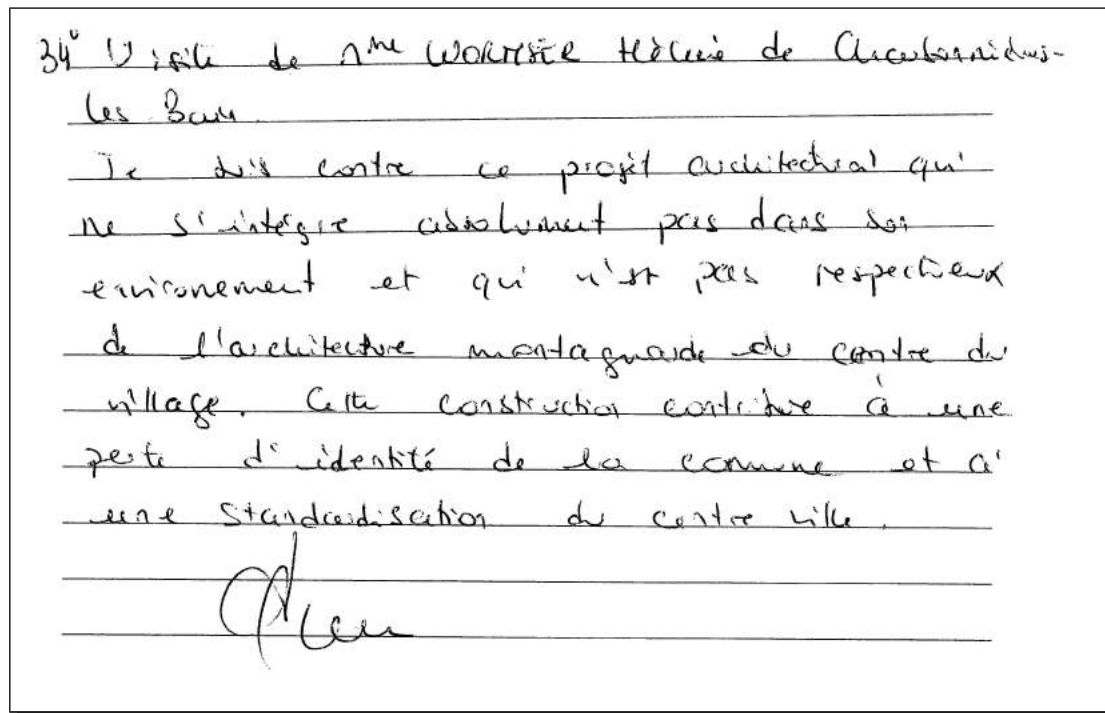 34° Visite de Mme WORMSER Hélène de
les Bains
Je suis contre ce projet architectural qui
ne s'intègre absolument pas dans son
environement et qui n'est pas respectueux
de l'architecture montagnarde du centre du
village. Cette construction contribue à une
perte d'identité de la commune et à
une standardisation du centre ville.